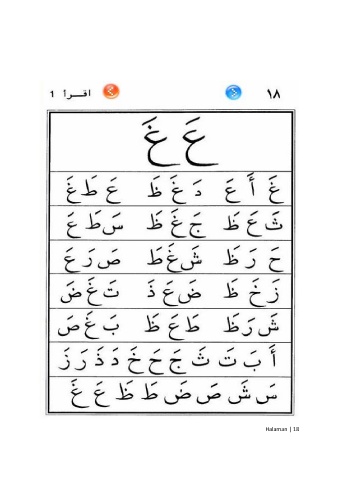 ١٨ اقرأ 1
عَ غَ
غَ أَ عَ دَ غَ ظَ عَ طَ غَ
ثَ عَ ظَ جَ غَ ظَ سَ طَ عَ
حَ رَ ظَ شَ غَ طَ صَ رَ عَ
زَ خَ ظَ ضَ عَ ذَ تَ غَ ضَ
شَ رَ ظَ طَ عَ ظَ بَ غَ صَ
أَ بَ تَ ثَ جَ حَ خَ دَ ذَ رَ زَ
سَ شَ صَ ضَ طَ ظَ عَ غَ
Halaman | 18